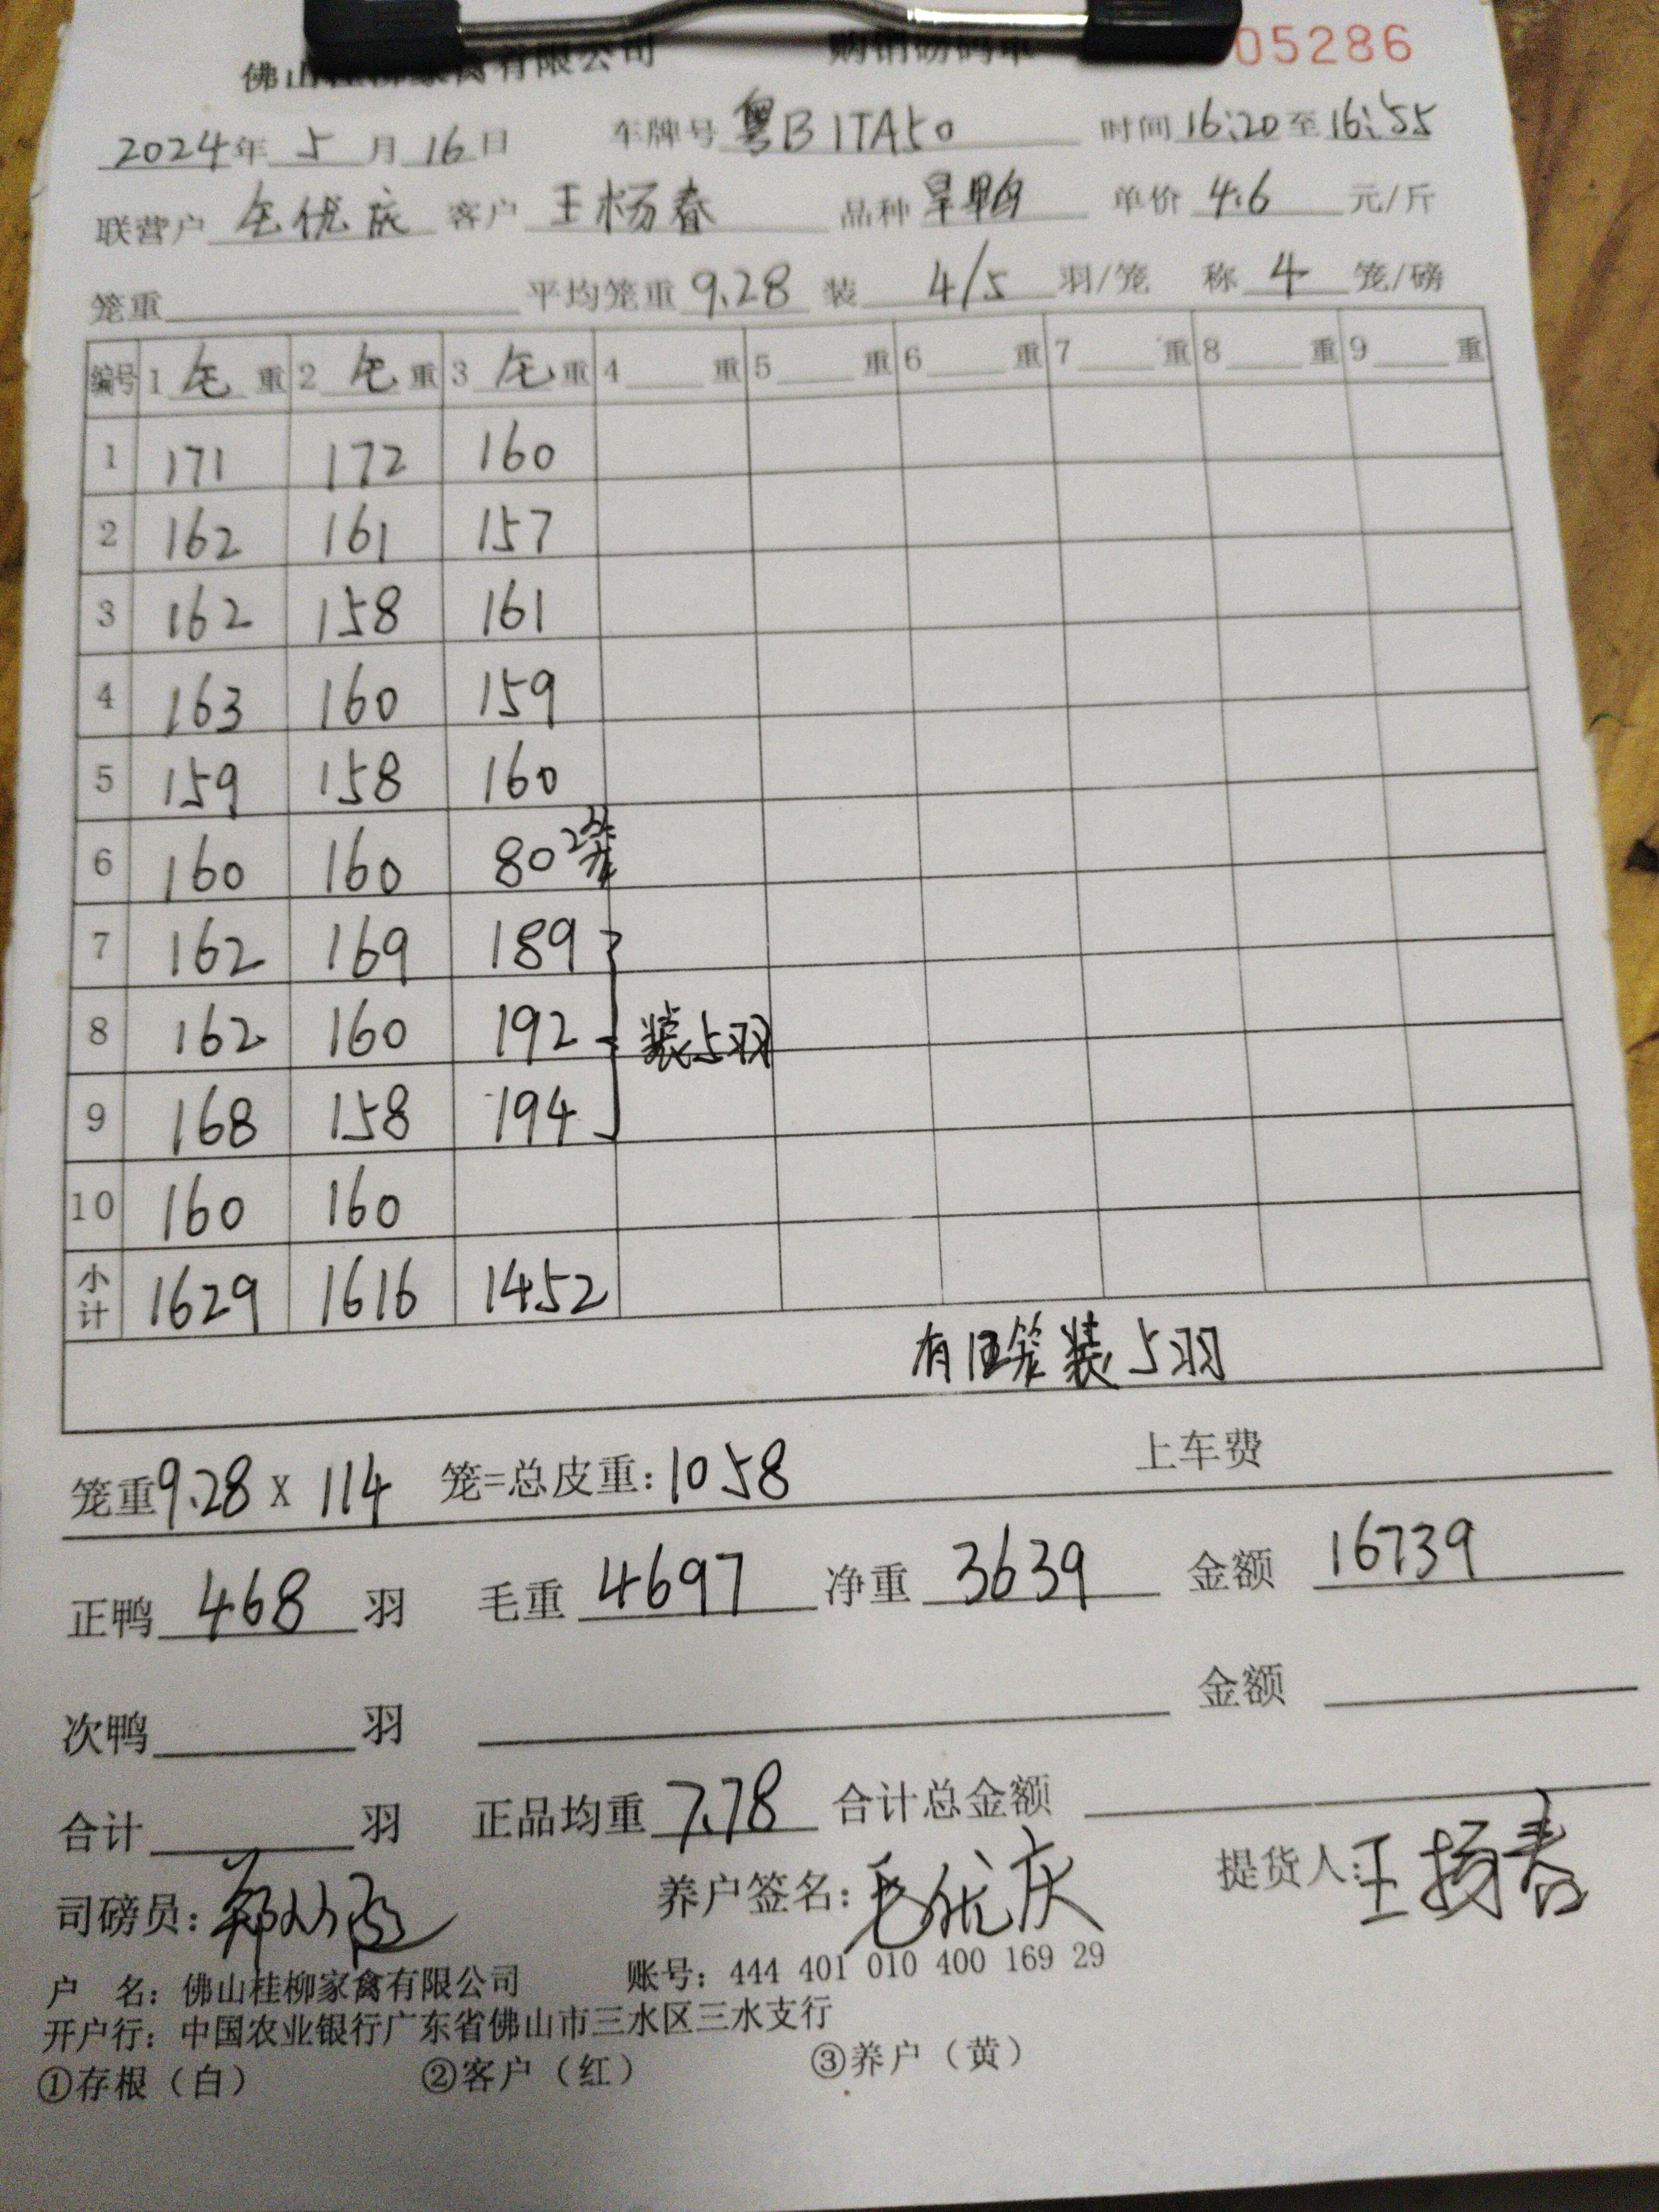 佛山桂柳家禽有限公司 购销磅码单 05286
2024年 5 月 16 日 车牌号 粤B1TA50 时间 16:20 至 16:55
联营户 毛优庆 客户 王杨春 品种 旱鸭 单价 4.6 元/斤
笼重 平均笼重 9.28 装 4/5 羽/笼 称 4 笼/磅
编号 1 毛 重 2 毛 重 3 毛 重 4 重 5 重 6 重 7 重 8 重 9 重
1 171 172 160
2 162 161 157
3 162 158 161
4 163 160 159
5 159 158 160
6 160 160 80 2笼
7 162 169 189
8 162 160 192 装5羽
9 168 158 194
10 160 160
小计 1629 1616 1452
有 笼装5羽
笼重9.28 X 114 笼=总皮重: 1058 上车费
正鸭 468 羽 毛重 4697 净重 3639 金额 16739
次鸭 羽 金额
合计 羽 正品均重 7.78 合计总金额
司磅员: 养户签名: 毛优庆 提货人: 王杨春
户 名: 佛山桂柳家禽有限公司 账号: 444 401 010 400 169 29
开户行: 中国农业银行广东省佛山市三水区三水支行
①存根（白） ②客户（红） ③养户（黄）